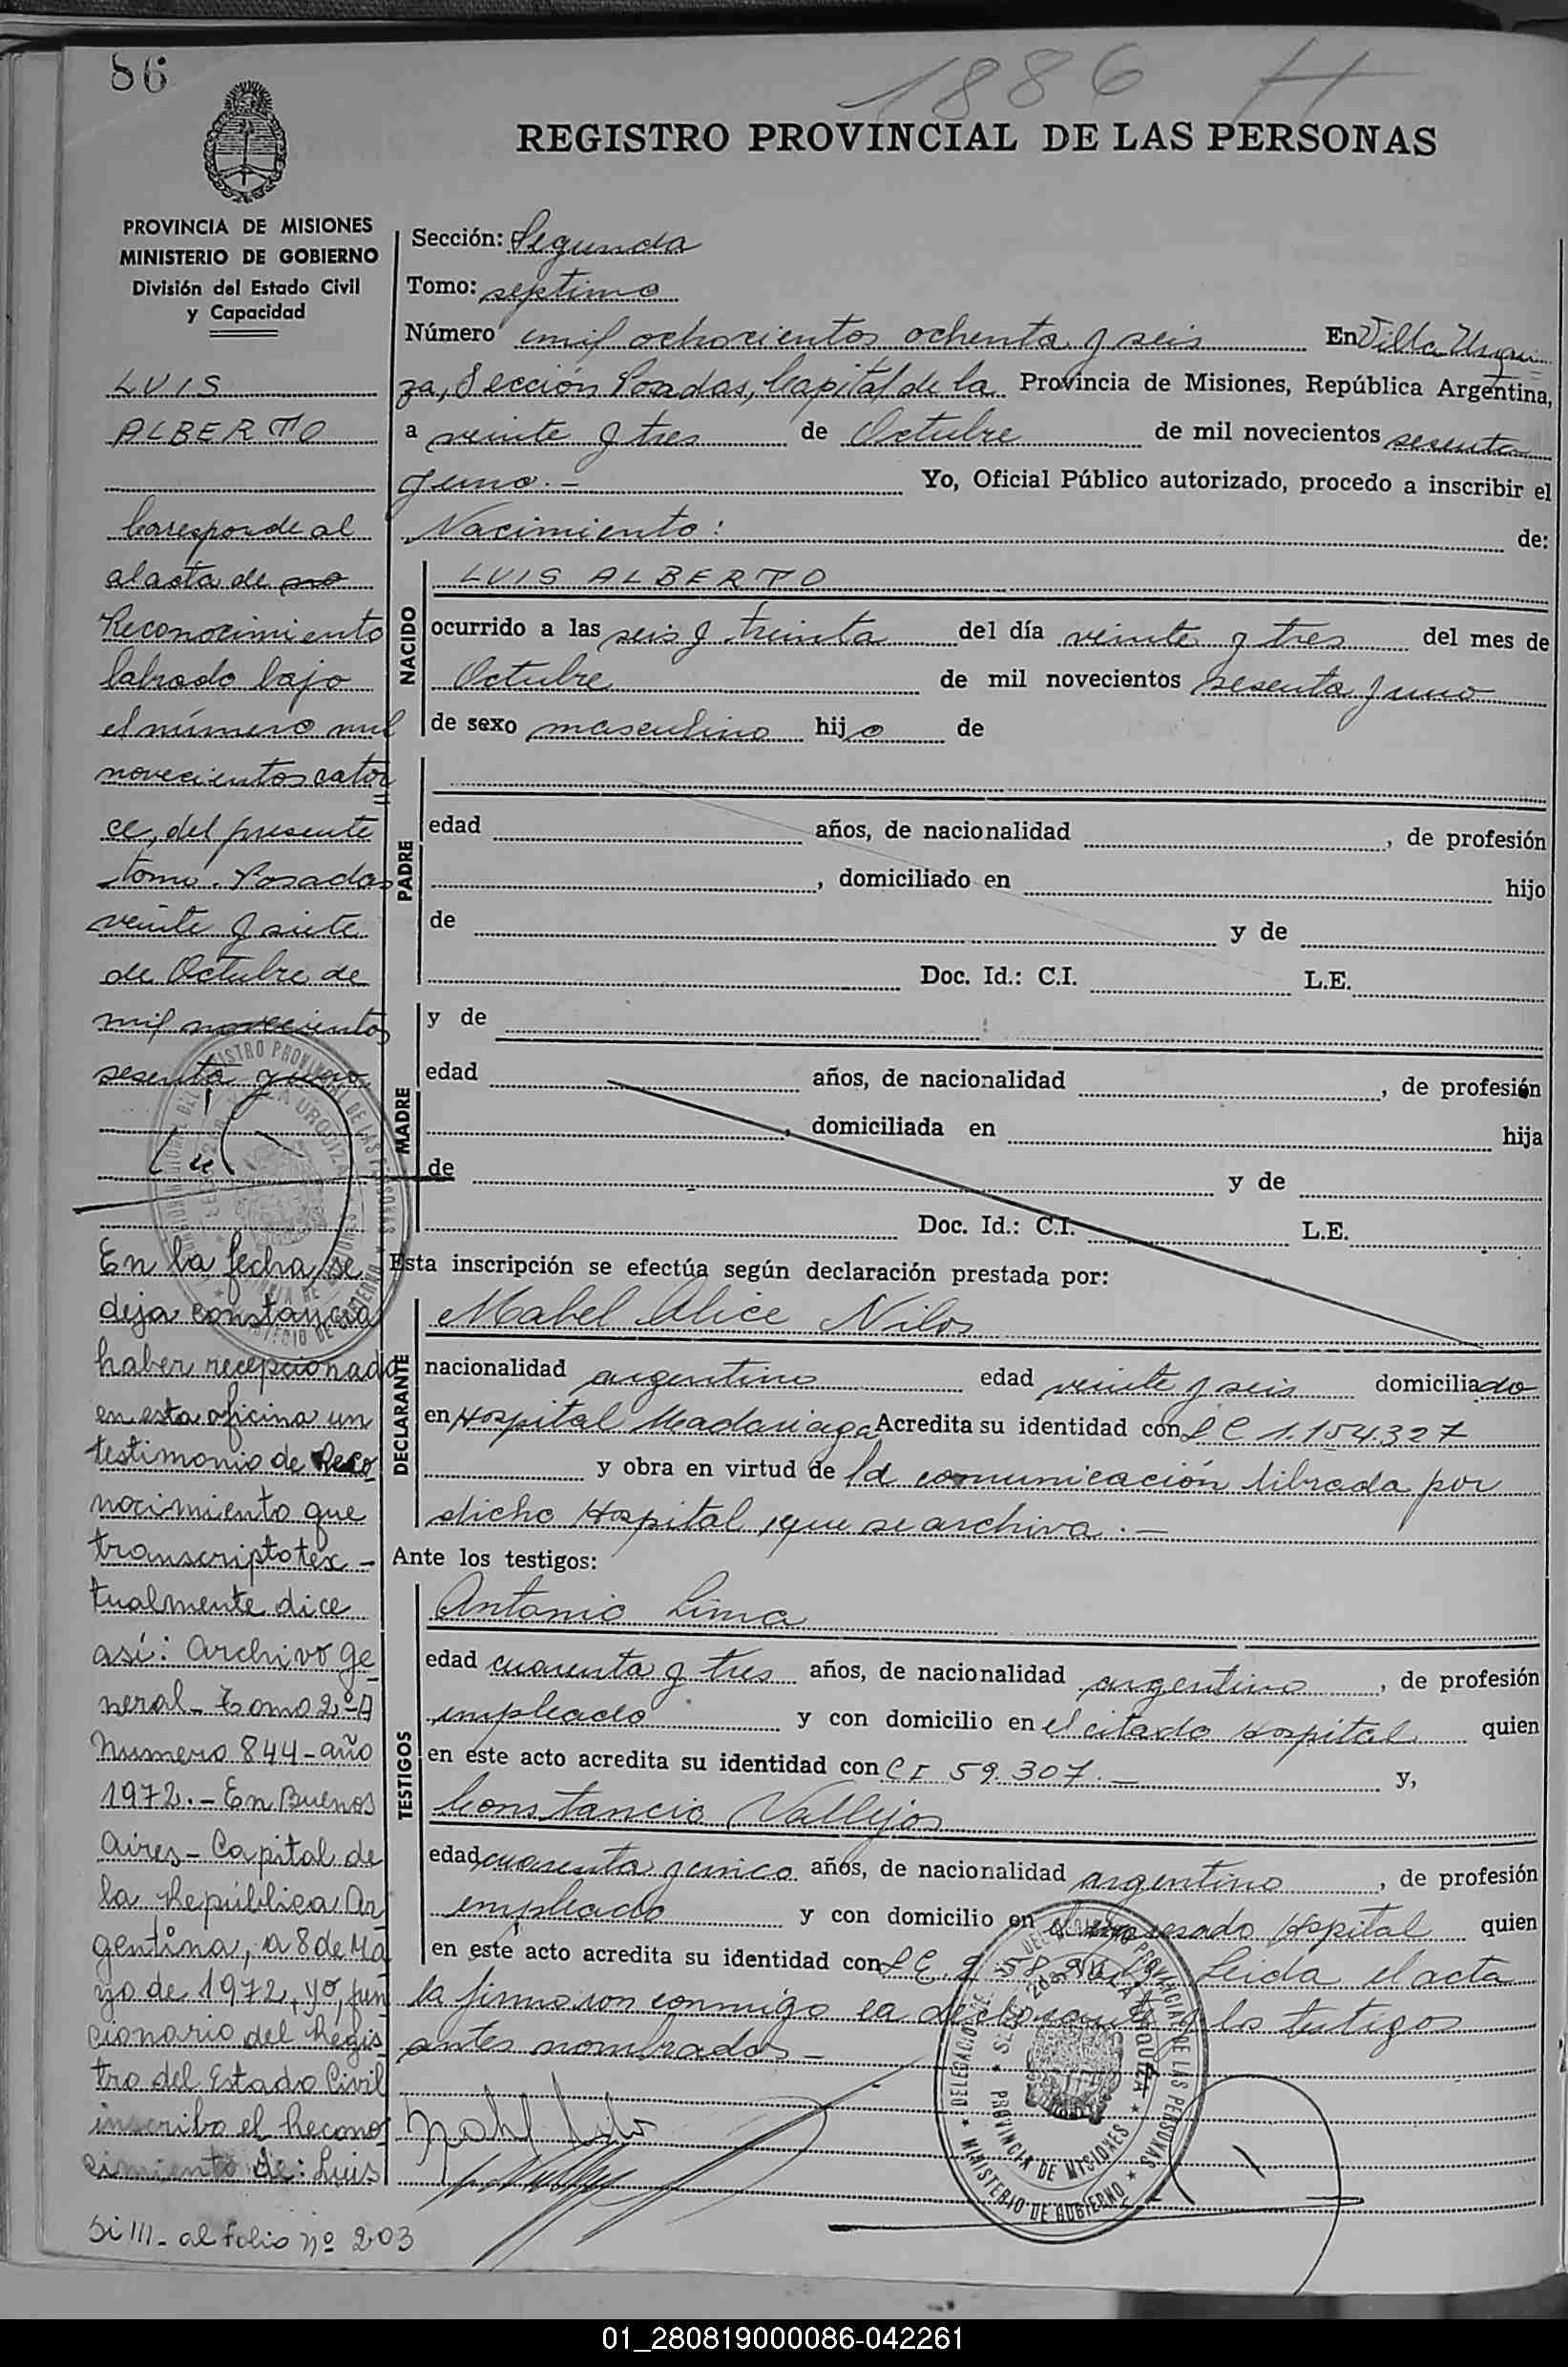 86
1886 H
REGISTRO PROVINCIAL DE LAS PERSONAS
PROVINCIA DE MISIONES
MINISTERIO DE GOBIERNO
División del Estado Civil
y Capacidad
LUIS
ALBERTO
Corresponde al
al acta de
Reconocimiento
labrado bajo
el número mil
novecientos cator
ce, del presente
tomo. Posadas
veinte y siete
de Octubre de
mil novecientos
sesenta y uno
En la fecha, se
deja constancia
haber recepcionado
en esta oficina un
testimonio de Reco
nocimiento que
transcripto tex-
tualmente dice
así: Archivo ge
neral - Tomo 2º A
Numero 844 - año
1972. - En Buenos
Aires - Capital de
la República Ar
gentina, a 8 de Ma
yo de 1972, yo, fun
cionario del Regis
tro del Estado Civil
inscribo el Recono
cimiento de: Luis
Si///- al folio nº 203
Sección: Segunda
Tomo: septimo
Número mil ochocientos ochenta y seis En Villa Urqui
za, Sección Posadas, Capital de la Provincia de Misiones, República Argentina,
a veinte y tres de Octubre de mil novecientos sesenta
y uno.- Yo, Oficial Público autorizado, procedo a inscribir el
Nacimiento: de:
NACIDO
LUIS ALBERTO
ocurrido a las seis y treinta del día veinte y tres del mes de
Octubre de mil novecientos sesenta y uno
de sexo masculino hijo de
PADRE
edad años, de nacionalidad , de profesión
, domiciliado en hijo
de y de
Doc. Id.: C.I. L.E.
MADRE
y de
edad años, de nacionalidad , de profesión
, domiciliada en hija
de y de
Doc. Id.: C.I. L.E.
Esta inscripción se efectúa según declaración prestada por:
DECLARANTE
Mabel Alice Nilos
nacionalidad argentina edad veinte y seis domiciliado
en Hospital Madariaga Acredita su identidad con L C 1.154.327
y obra en virtud de la comunicación librada por
dicho Hospital, que se archiva.-
Ante los testigos:
TESTIGOS
Antonio Lima
edad cuarenta y tres años, de nacionalidad argentino, de profesión
empleado y con domicilio en el citado Hospital quien
en este acto acredita su identidad con C I 59.307.- y,
Constancio Vallejos
edad cuarenta y cinco años, de nacionalidad argentino, de profesión
empleado y con domicilio en el expresado Hospital quien
en este acto acredita su identidad con L E Leida el acta
la firman conmigo la declarante y los testigos
antes nombrados -
PROVINCIA DE MISIONES
MINISTERIO DE GOBIERNO
01_280819000086-042261